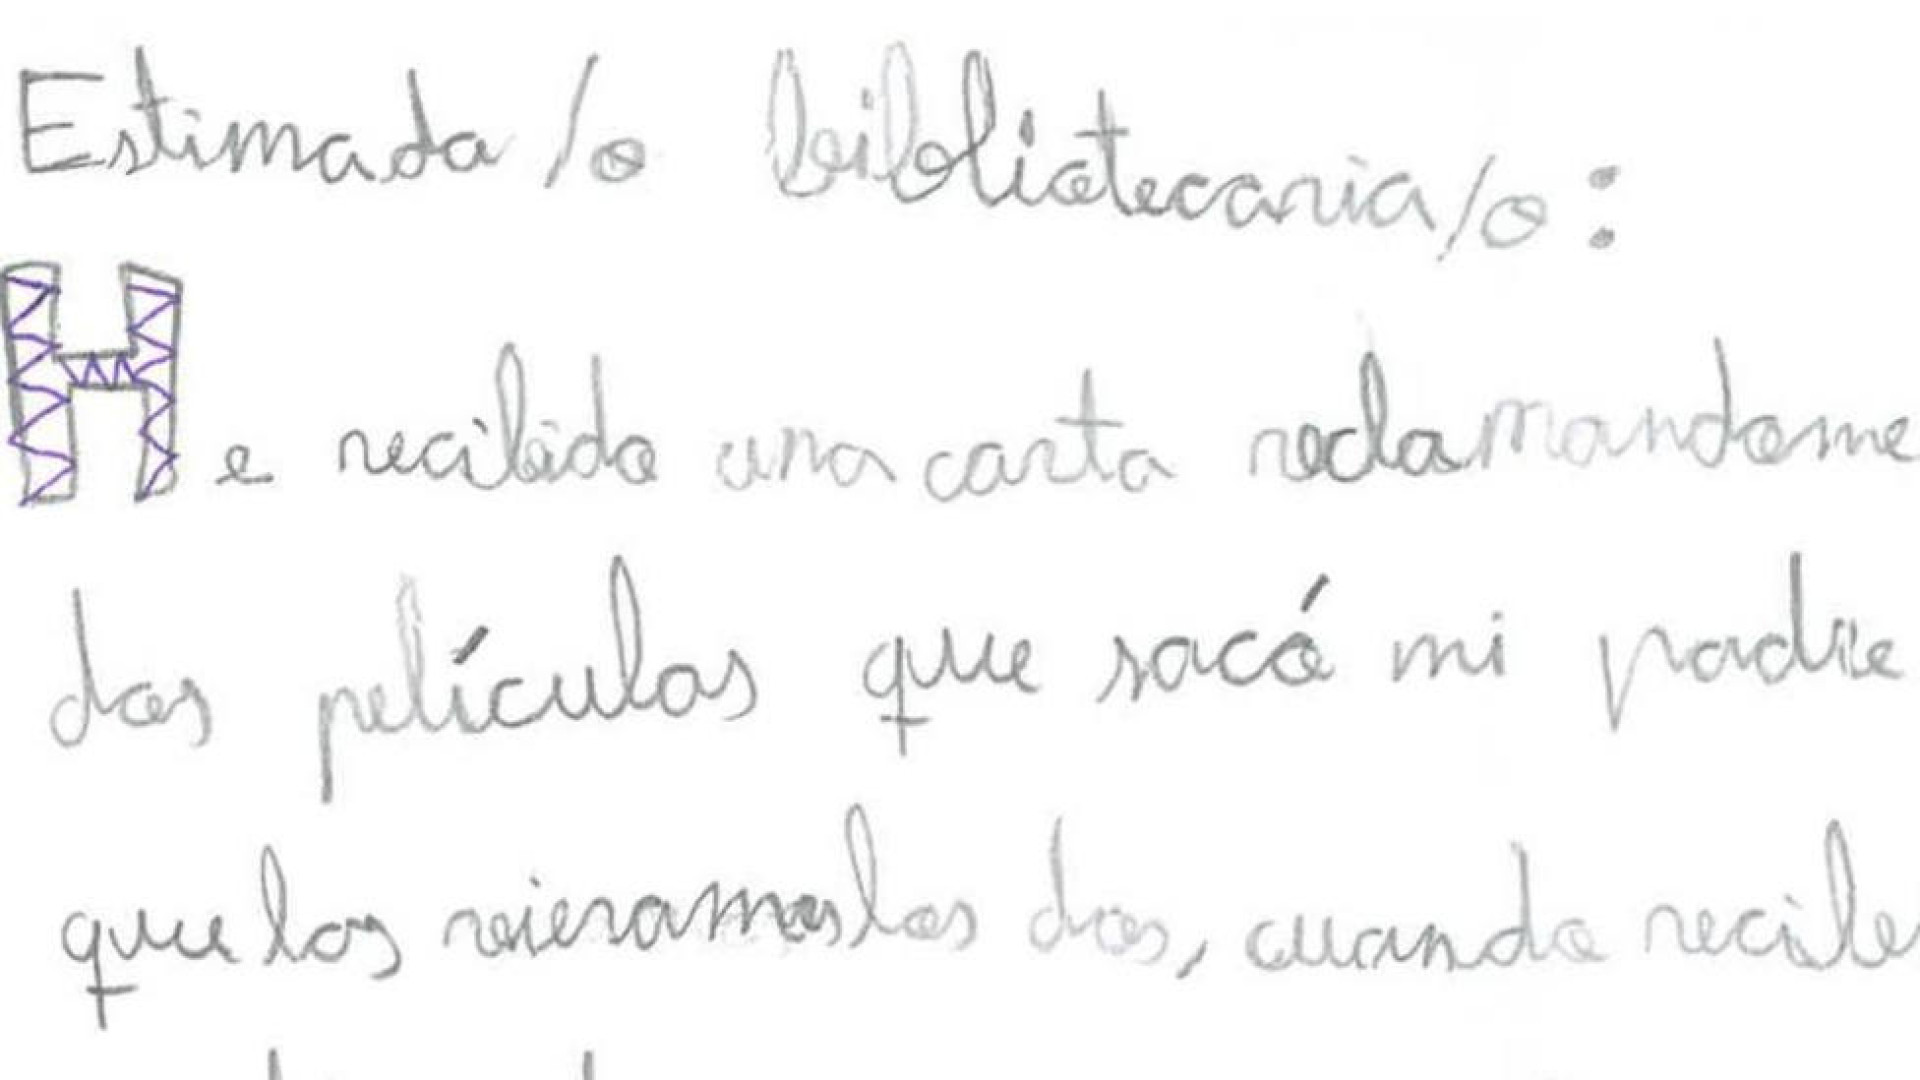 Estimada/o bibliotecaria/o:
He recibido una carta reclamandome
dos películas que sacó mi padre
que las vieramos los dos, cuando